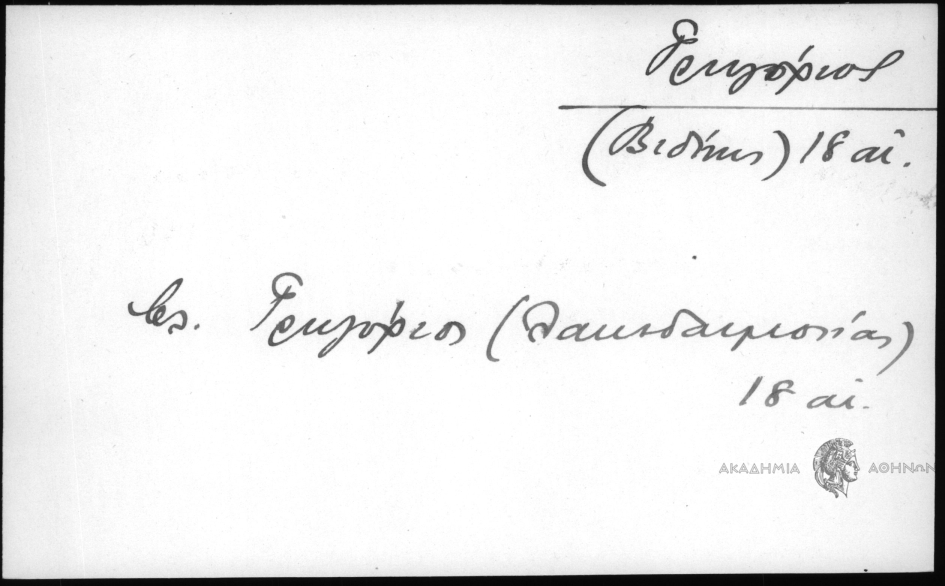 Γρηγόριος
(Βιδύνης) 18 αἰ.
βλ. Γρηγόριος (Λακεδαιμονίας)
18 αἰ.
ΑΚΑΔΗΜΙΑ ΑΘΗΝΩΝ